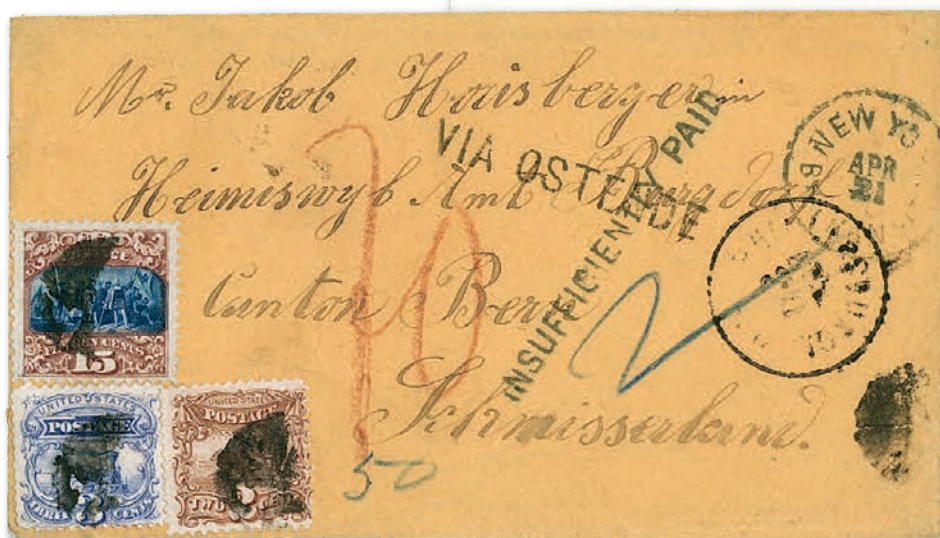 Mr. Jakob Houisberger in
Heimiswyl Amt Burgdorf
Canton Bern
Schmisserland.
VIA OSTENDE
INSUFFICIENTLY PAID
NEW YO
APR
21
15
UNITED STATES
POSTAGE
THREE CENTS
UNITED STATES
POSTAGE
TWO CENTS
50
2